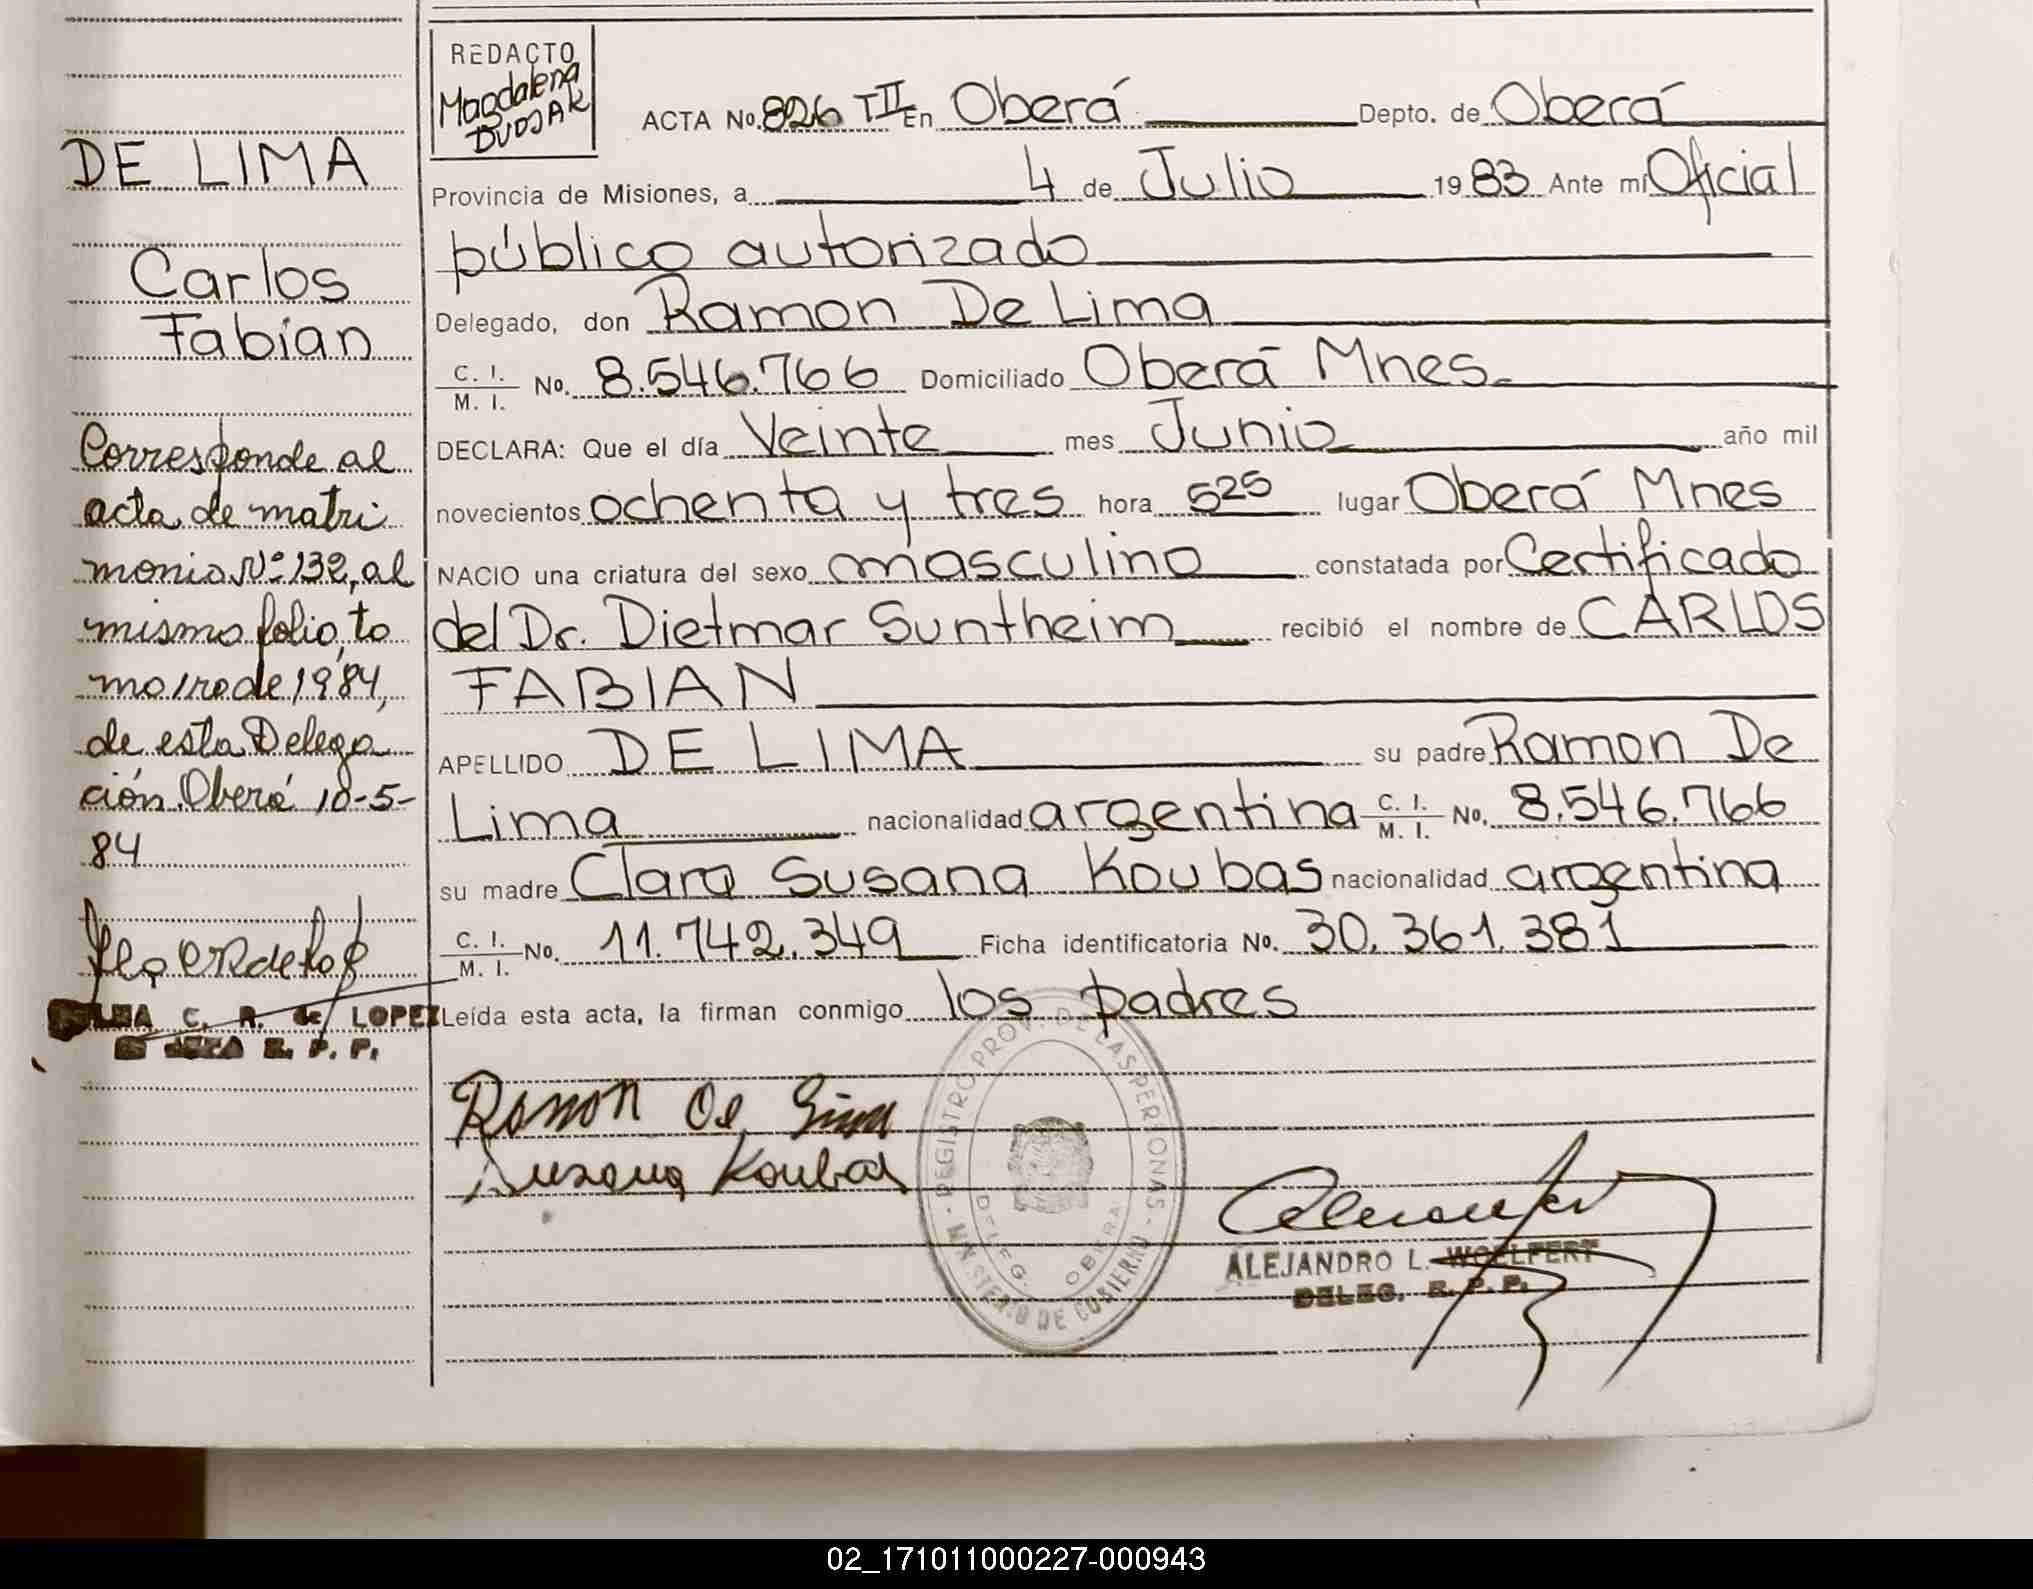 DE LIMA
Carlos
Fabian
Corresponde al
acta de matri
monio Nº 132, al
mismo folio, to
mo 1ro de 1984,
de esta Delega
ción. Oberá 10-5-
84
C. R. de LOPEZ
R. P. P.
REDACTO
Magdalena
DUDJAK
ACTA No. 826 TII En Oberá Depto. de Oberá
Provincia de Misiones, a 4 de Julio 1983 Ante mí Oficial
público autorizado
Delegado, don Ramon De Lima
C. I. / M. I. No. 8.546.766 Domiciliado Oberá Mnes.
DECLARA: Que el día Veinte mes Junio año mil
novecientos ochenta y tres hora 525 lugar Oberá Mnes
NACIO una criatura del sexo masculino constatada por Certificado
del Dr. Dietmar Suntheim recibió el nombre de CARLOS
FABIAN
APELLIDO DE LIMA su padre Ramon De
Lima nacionalidad argentina C. I. / M. I. No. 8.546.766
su madre Clara Susana Koubas nacionalidad argentina
C. I. / M. I. No. 11.742.349 Ficha identificatoria No. 30.361.381
Leída esta acta, la firman conmigo los padres
Ramon De Lima
Susana Koubas
REGISTRO PROV. DE LAS PERSONAS
MINISTERIO DE GOBIERNO
DELEG. OBERA
ALEJANDRO L. WOELFERT
DELEG. R. P. P.
02_171011000227-000943